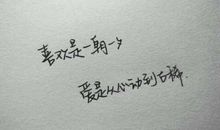 喜欢是一朝一夕
爱是从心动到白稀